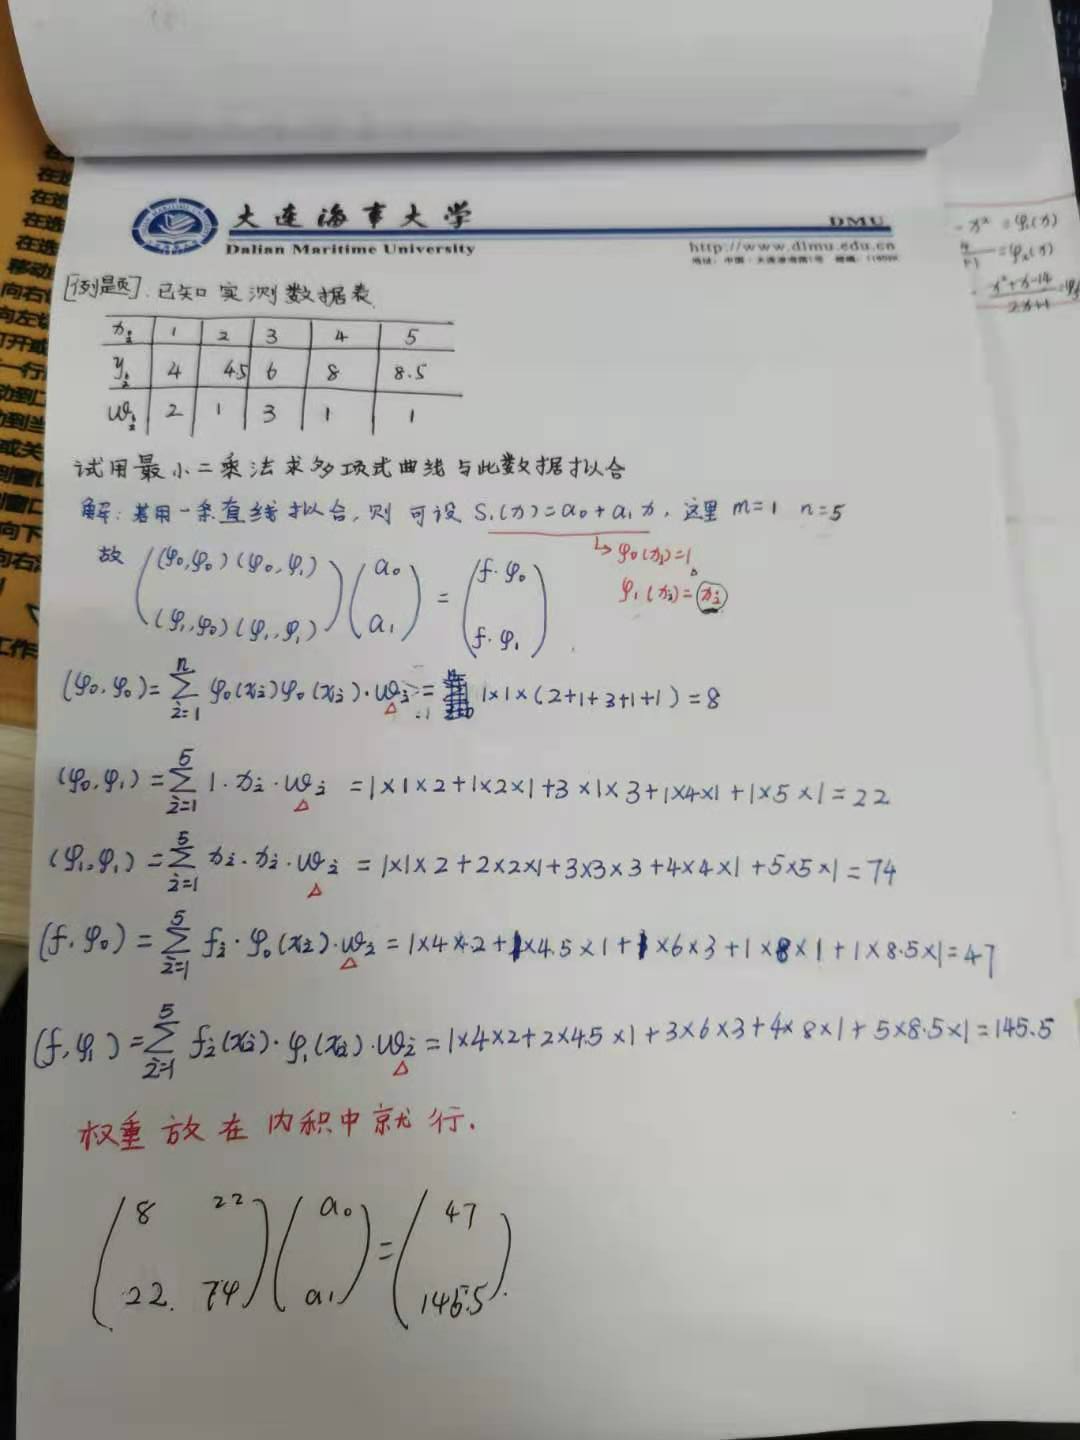 大连海事大学 DMU
Dalian Maritime University http://www.dlmu.edu.cn
[例题]. 已知实测数据表
xᵢ 1 2 3 4 5
yᵢ 4 4.5 6 8 8.5
ωᵢ 2 1 3 1 1
试用最小二乘法求多项式曲线与此数据拟合
解: 若用一条直线拟合, 则可设 S₁(x)=a₀+a₁x, 这里 m=1 n=5
↳ φ₀(xᵢ)=1
φ₁(xᵢ)=xᵢ
故 ((φ₀,φ₀) (φ₀,φ₁)) (a₀) = (f·φ₀)
((φ₁,φ₀) (φ₁,φ₁)) (a₁) (f·φ₁)
(φ₀,φ₀)=∑ⁿᵢ₌₁ φ₀(xᵢ)φ₀(xᵢ)·ωᵢ = 1×1×(2+1+3+1+1)=8
(φ₀,φ₁)=∑⁵ᵢ₌₁ 1·xᵢ·ωᵢ =1×1×2+1×2×1+3×1×3+1×4×1+1×5×1=22
(φ₁,φ₁)=∑⁵ᵢ₌₁ xᵢ·xᵢ·ωᵢ =1×1×2+2×2×1+3×3×3+4×4×1+5×5×1=74
(f,φ₀)=∑⁵ᵢ₌₁ fᵢ·φ₀(xᵢ)·ωᵢ =1×4×2+1×4.5×1+1×6×3+1×8×1+1×8.5×1=47
(f,φ₁)=∑⁵ᵢ₌₁ fᵢ(xᵢ)·φ₁(xᵢ)·ωᵢ=1×4×2+2×4.5×1+3×6×3+4×8×1+5×8.5×1=145.5
权重放在内积中就行.
(8 22) (a₀) = (47)
(22. 74) (a₁) (145.5).